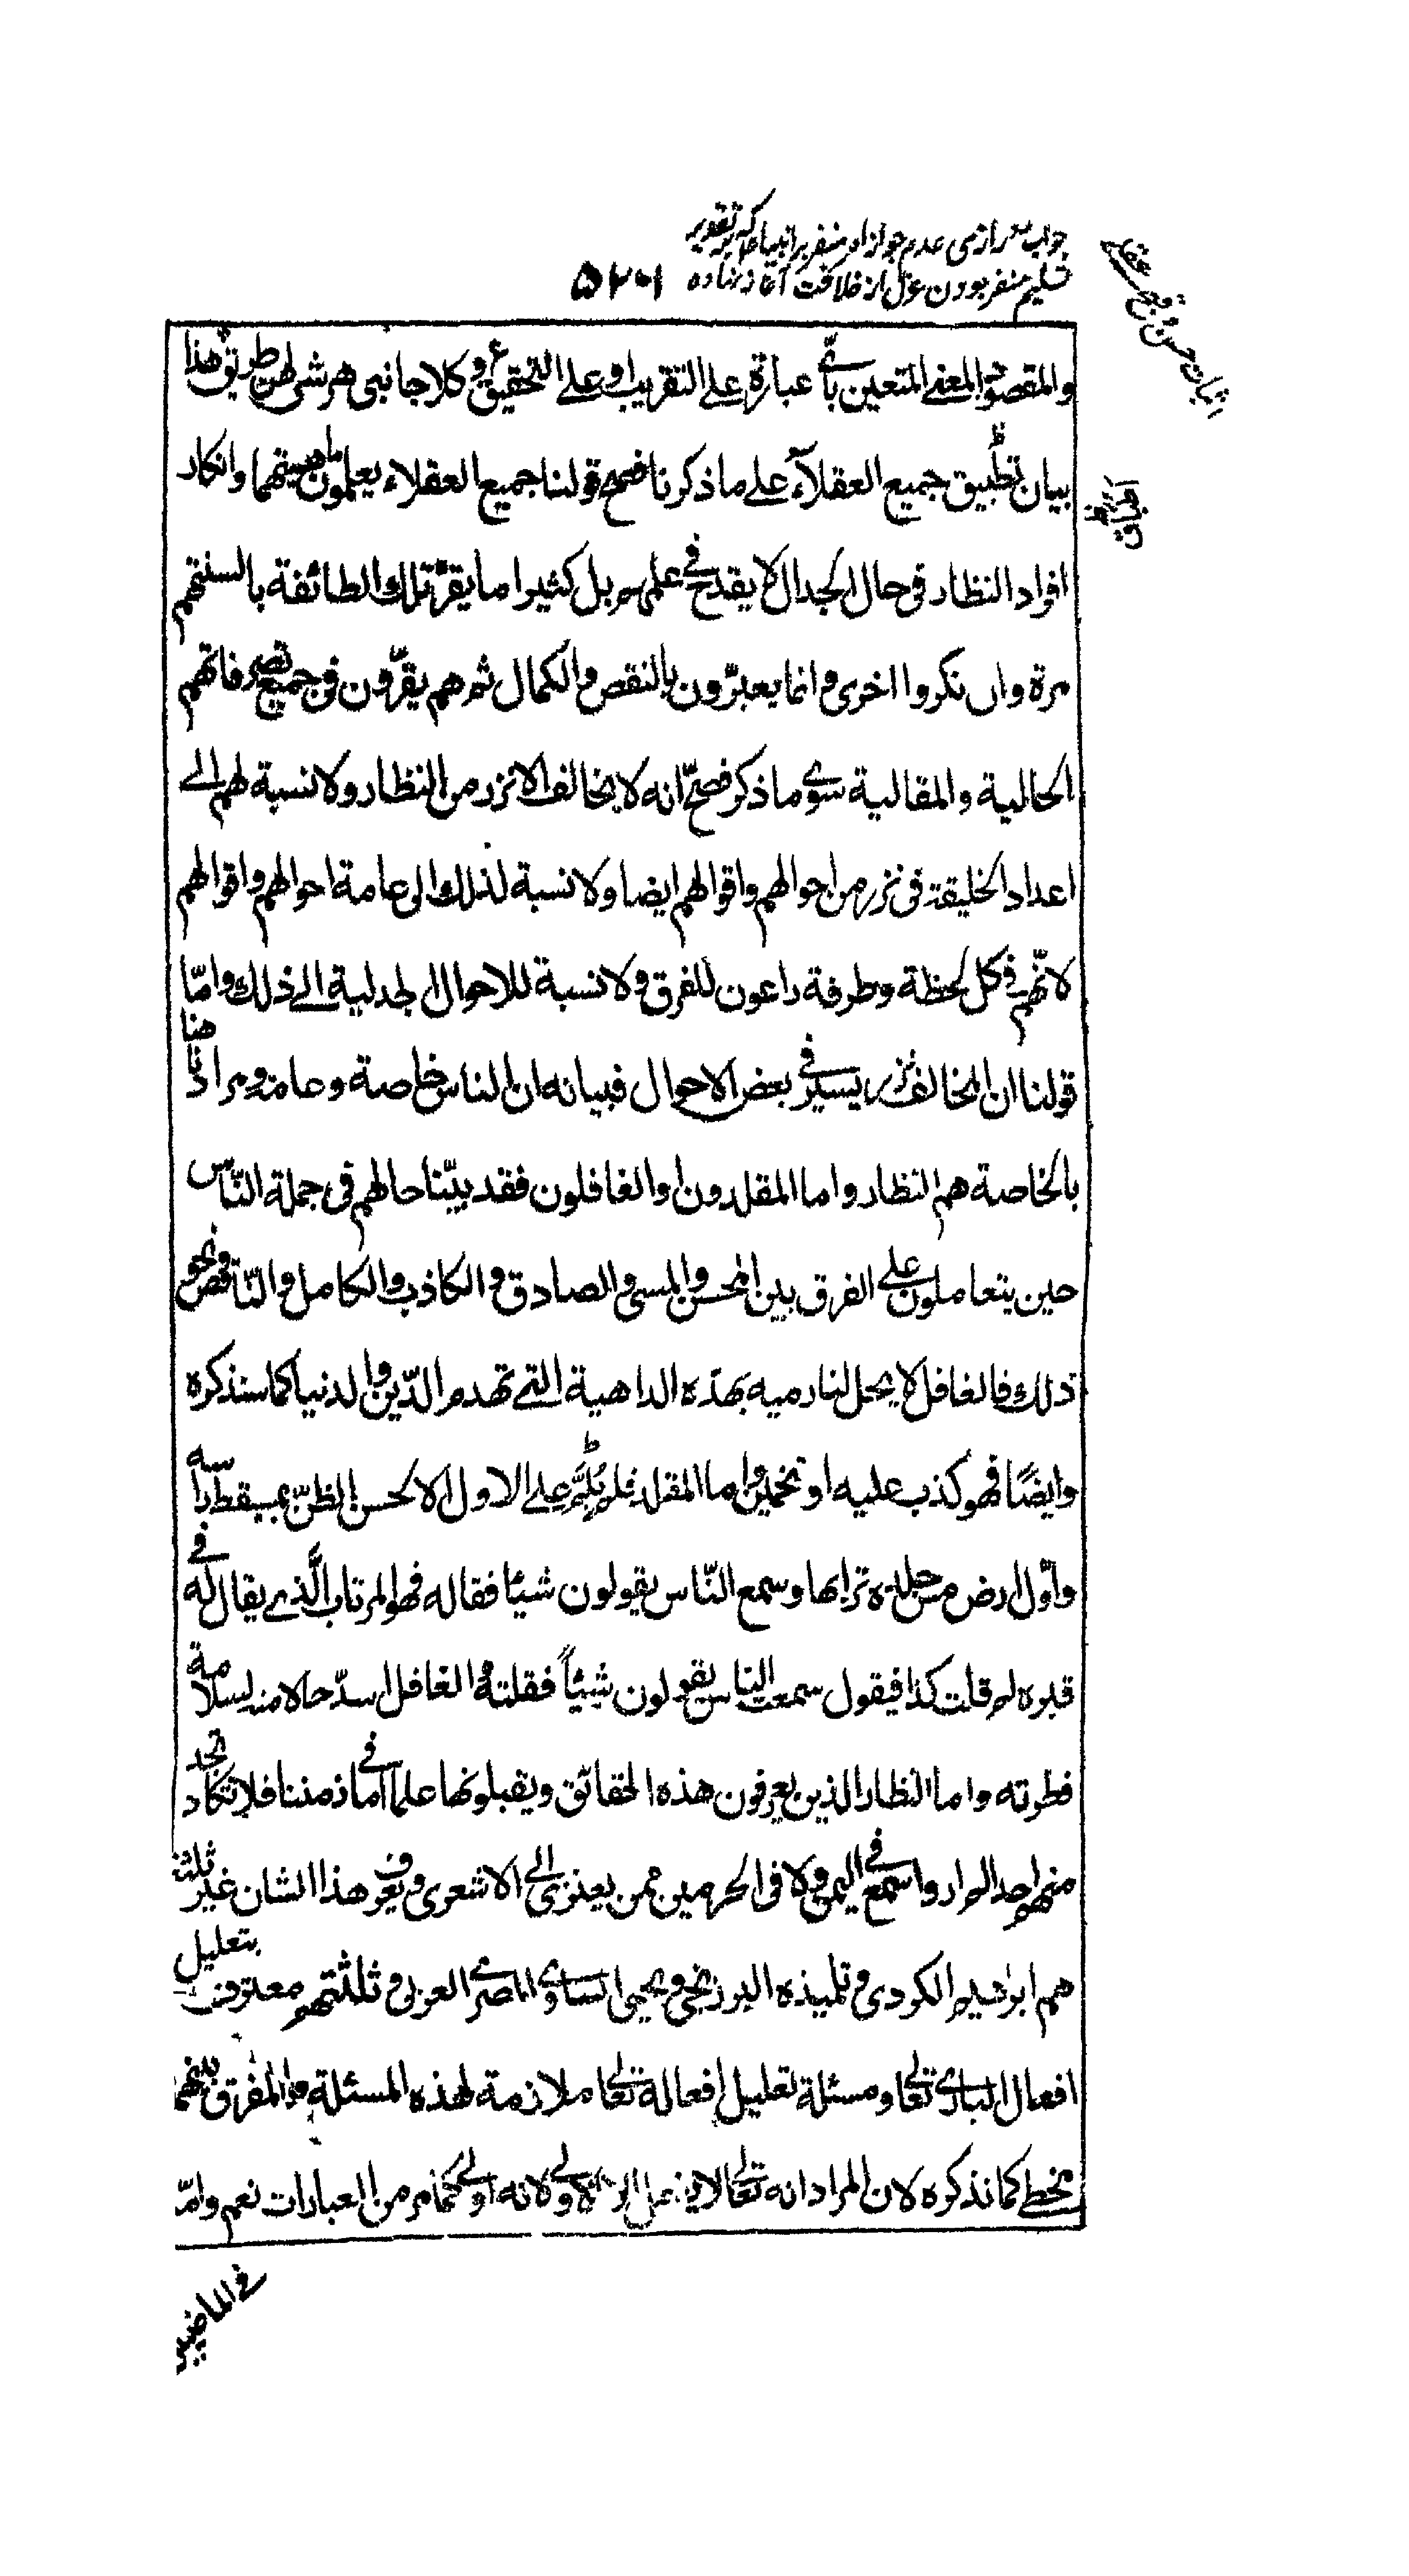 جواب رازی عدم جواز امر منفر بر انبیا که بر تقدیر
تسلیم منفر بودن عزل از خلافت آغاز نهاده ۵۲۰۱
اثبات حسن و قبح عقلی
والمقصود المعنى المتعين باى عبارة على التقريب او على التحقيق وكلا جانبى هرشى لهن طريق هذا
بيان تطبيق جميع العقلاء على ما ذكرنا فصح قولنا جميع العقلاء يعلمون ماهيتهما وانكار
افراد النظار فى حال الجدال لا يقدح فى علمهم بل كثيرا ما يقر تلك الطائفة بالسنتهم
مرة وان نكروا اخرى وانما يعبرون بالنقص والكمال ثم هم يقرّون فى جميع تصرفاتهم
الحالية والمقالية سوى ما ذكر فصحّ انه لا يخالف الا نزر من النظار ولا نسبة لهم الى
اعداد الخليقة فى نزر من احوالهم واقوالهم ايضا ولا نسبة لذلك الى عامة احوالهم واقوالهم
لانّهم فى كل لحظة وطرفة داعون للفرق ولا نسبة للاحوال الجدلية الى ذلك وامّا
قولنا ان المخالف نزر يسير فى بعض الاحوال فبيانه ان الناس خاصة وعامة ومرادنا هنا
بالخاصة هم النظار واما المقلدون او الغافلون فقد بيّنا حالهم فى جملة النّاس
حين يتعاملون على الفرق بين المحسن والمسى والصادق والكاذب والكامل والنّاقص ونحو
ذلك فالغافل لا يحل لنا رميه بهذه الداهية التى تهدم الدّين والدنيا كما سنذكره
وايضًا فهو كذب عليه او تخمين واما المقلد فلم يُبَرَّ على الاول الا لحسن الظنّ بمسقط راسه
واوّل ارض مس جلده ترابها وسمع النّاس يقولون شيئا فقاله فهو المرتاب الَّذى يقال له فى
قبره لم قلت كذا فيقول سمعت الناس يقولون شيئاً فقلته والغافل اسدّ حالا منه لسلامة
فطرته واما النظار الذين يعرفون هذه الحقائق ويقبلونها علما اما فى زمننا فلا تكاد تجد
منهم احدا لم ار واسمع فى اليمن ولا فى الحرمين ممن يعتزى الى الاشعرى ويعرف هذا الشان غير ثلثة
هم ابراهيم الكردى وتلميذه البرزنجى ويحيى الساوى المصرى العربى وثلثتهم معترف بتعليل
افعال البارى تعالى ومسئلة تعليل افعاله تعالى ملازمة لهذه المسئلة والمفرق بينهما
مخط كما نذكره لان المراد انه تعالى لا يفعل الا الاولى لانه اولى كما مر من العبارات نعم وامّ
فى الماضيين